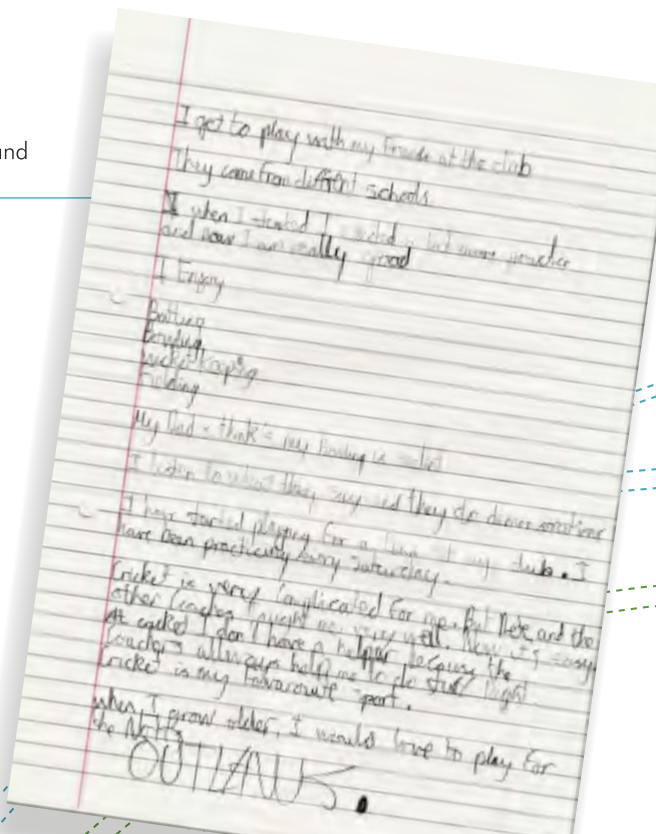 und
I get to play with my friends at the club
They come from different schools
I when I started I needed a lot more practice
and now I am really good
I Enjoy
Batting
Bowling
wicket keeping
Fielding
My Dad think's my Bowling is
I listen to what they say and they do demonstrations
I have started playing for a team at my club. I
have been practicing every saturday.
Cricket is very Complicated for me. But and the
other Coaches taught me very well. Now it's easy.
At cricket I don't have a helper because the
Coaches allways help me to do stuff Right.
Cricket is my favarourite sport.
when I grow older, I would love to play for
the Notts
OUTLAWS.